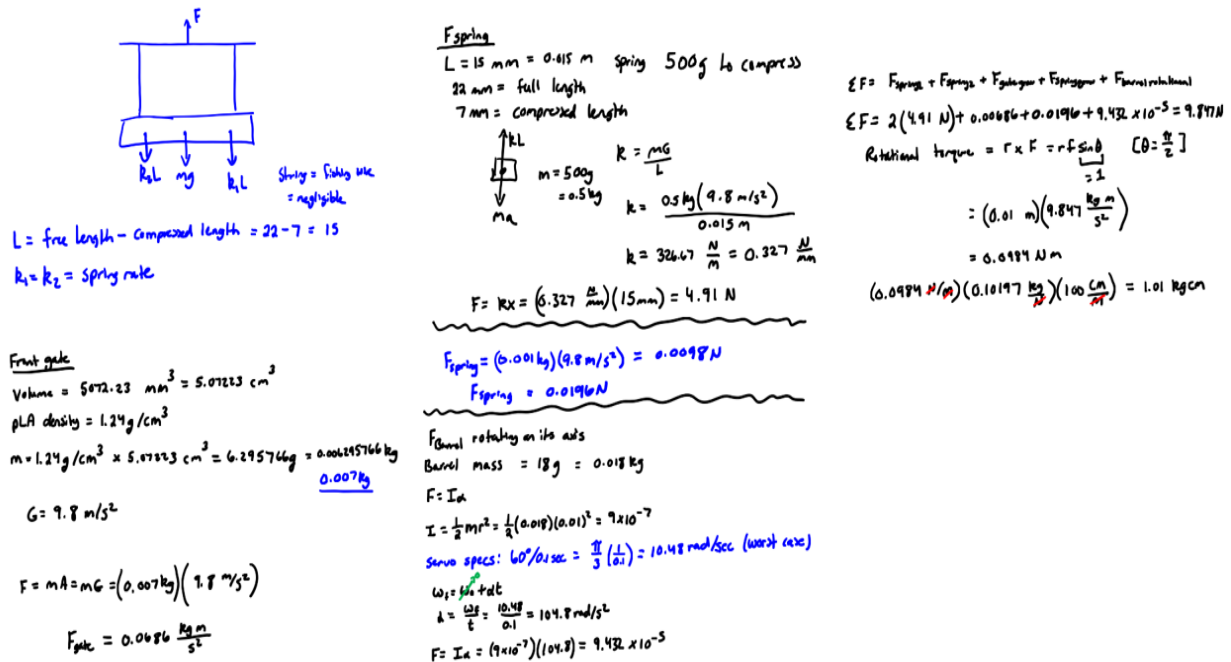 F
k₂L mg k₁L
String = fishing line
= negligible
L = free length - compressed length = 22 - 7 = 15
k₁ = k₂ = spring rate
Front gate
Volume = 5072.23 mm³ = 5.07223 cm³
pLA density = 1.24g/cm³
m = 1.24g/cm³ × 5.07223 cm³ = 6.295766g = 0.006295766kg
0.007kg
G = 9.8 m/s²
F = mA = mG = (0.007kg)(9.8 m/s²)
F gate = 0.0686 kg m / s²
F spring
L = 15 mm = 0.015 m spring 500g to compress
22 mm = full length
7 mm = compressed length
kL
m = 500g
= 0.5kg
ma
k = mG / L
k = 0.5kg(9.8 m/s²) / 0.015 m
k = 326.67 N/m = 0.327 N/mm
F = kx = (0.327 N/mm)(15mm) = 4.91 N
F spring = (0.001kg)(9.8 m/s²) = 0.0098 N
F spring = 0.0196 N
F Barrel rotating on its axis
Barrel mass = 18g = 0.018kg
F = Iα
I = ½mr² = ½(0.018)(0.01)² = 9×10⁻⁷
Servo specs: 60°/0.1sec = π/3 (1/0.1) = 10.48 rad/sec (worst case)
ωf = ω₀ + αt
α = ωf/t = 10.48/0.1 = 104.8 rad/s²
F = Iα = (9×10⁻⁷)(104.8) = 9.432 ×10⁻⁵
ΣF = Fspring1 + Fspring2 + Fgate grav + Fspring grav + Fbarrel rotational
ΣF = 2(4.91 N) + 0.00686 + 0.0196 + 9.432 ×10⁻⁵ = 9.847N
Rotational torque = r × F = rf sinθ [θ = π/2]
= 1
= (0.01 m)(9.847 kg m / s²)
= 0.0984 Nm
(0.0984 N/m)(0.10197 kg/N)(100 cm/m) = 1.01 kgcm